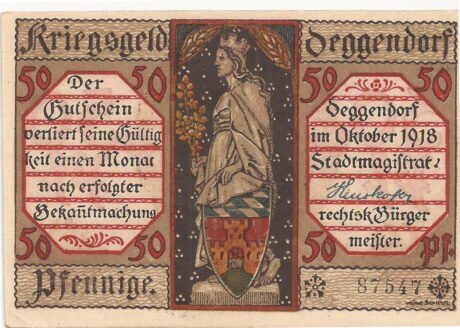 Kriegsgeld Deggendorf
50 50
Der
Gutschein
verliert seine Gültig
keit einen Monat
nach erfolgter
Bekan̄tmachung
50 50
Pfennige.
50 50
Deggendorf
im Oktober 1918
Stadtmagistrat:
rechtsk Bürger
meister.
50 Pf.
87547